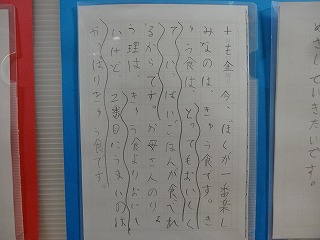 十も金 今、ぼくが一番楽し
みなのは、きゅう食です。き
ゅう食は、とってもおいしく
て、いっぱいごはんが食べれ
るからです。お母さんのりょ
う理は、きゅう食よりおいし
いけど、2番目にうまいのは
やっぱりきゅう食です。
めざしていきたいです。